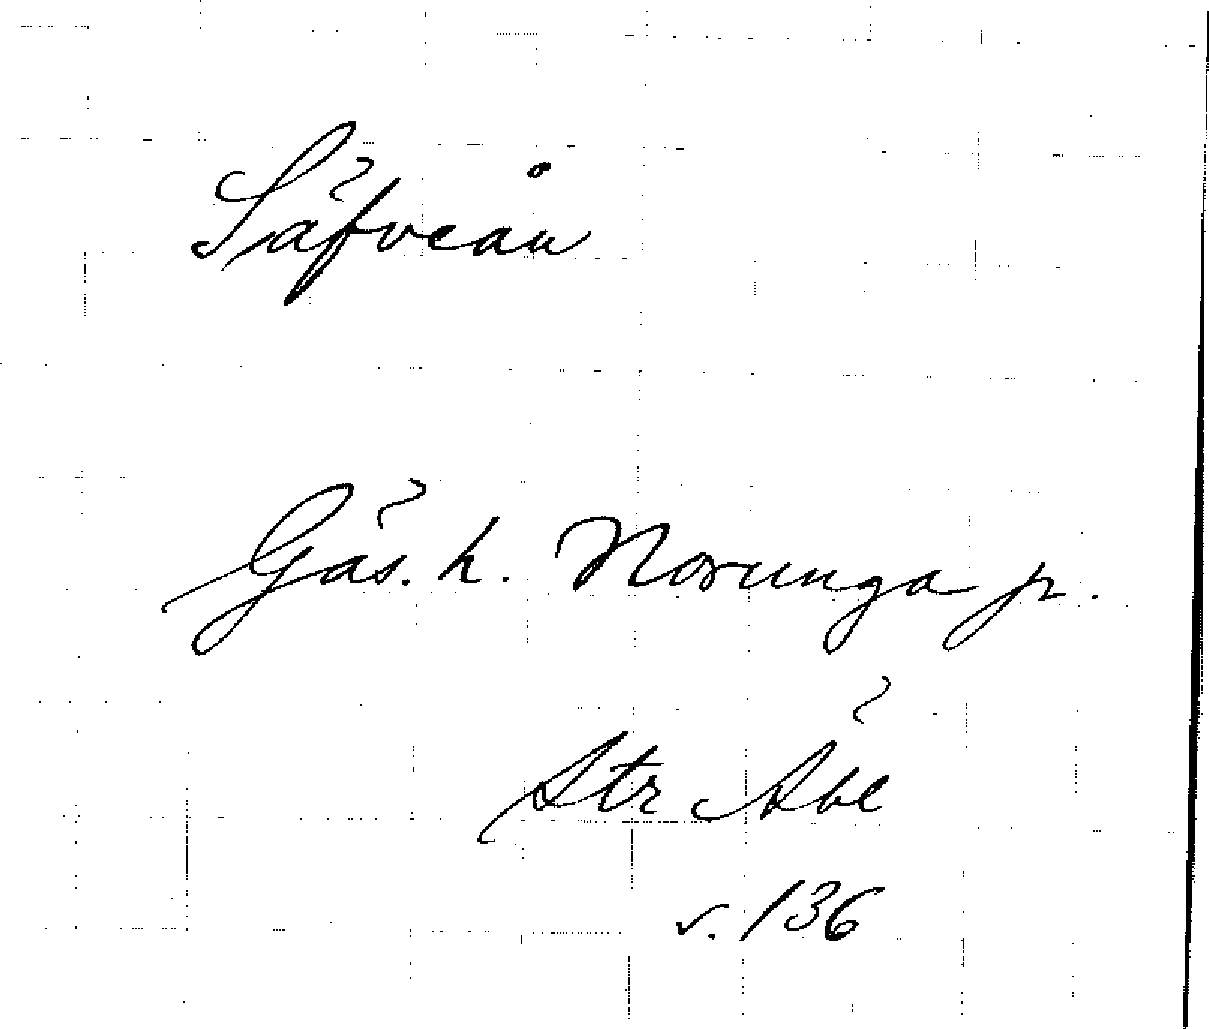 Säfveån
Gäs. h. Norunga jr.
Str Äbl
s. 136